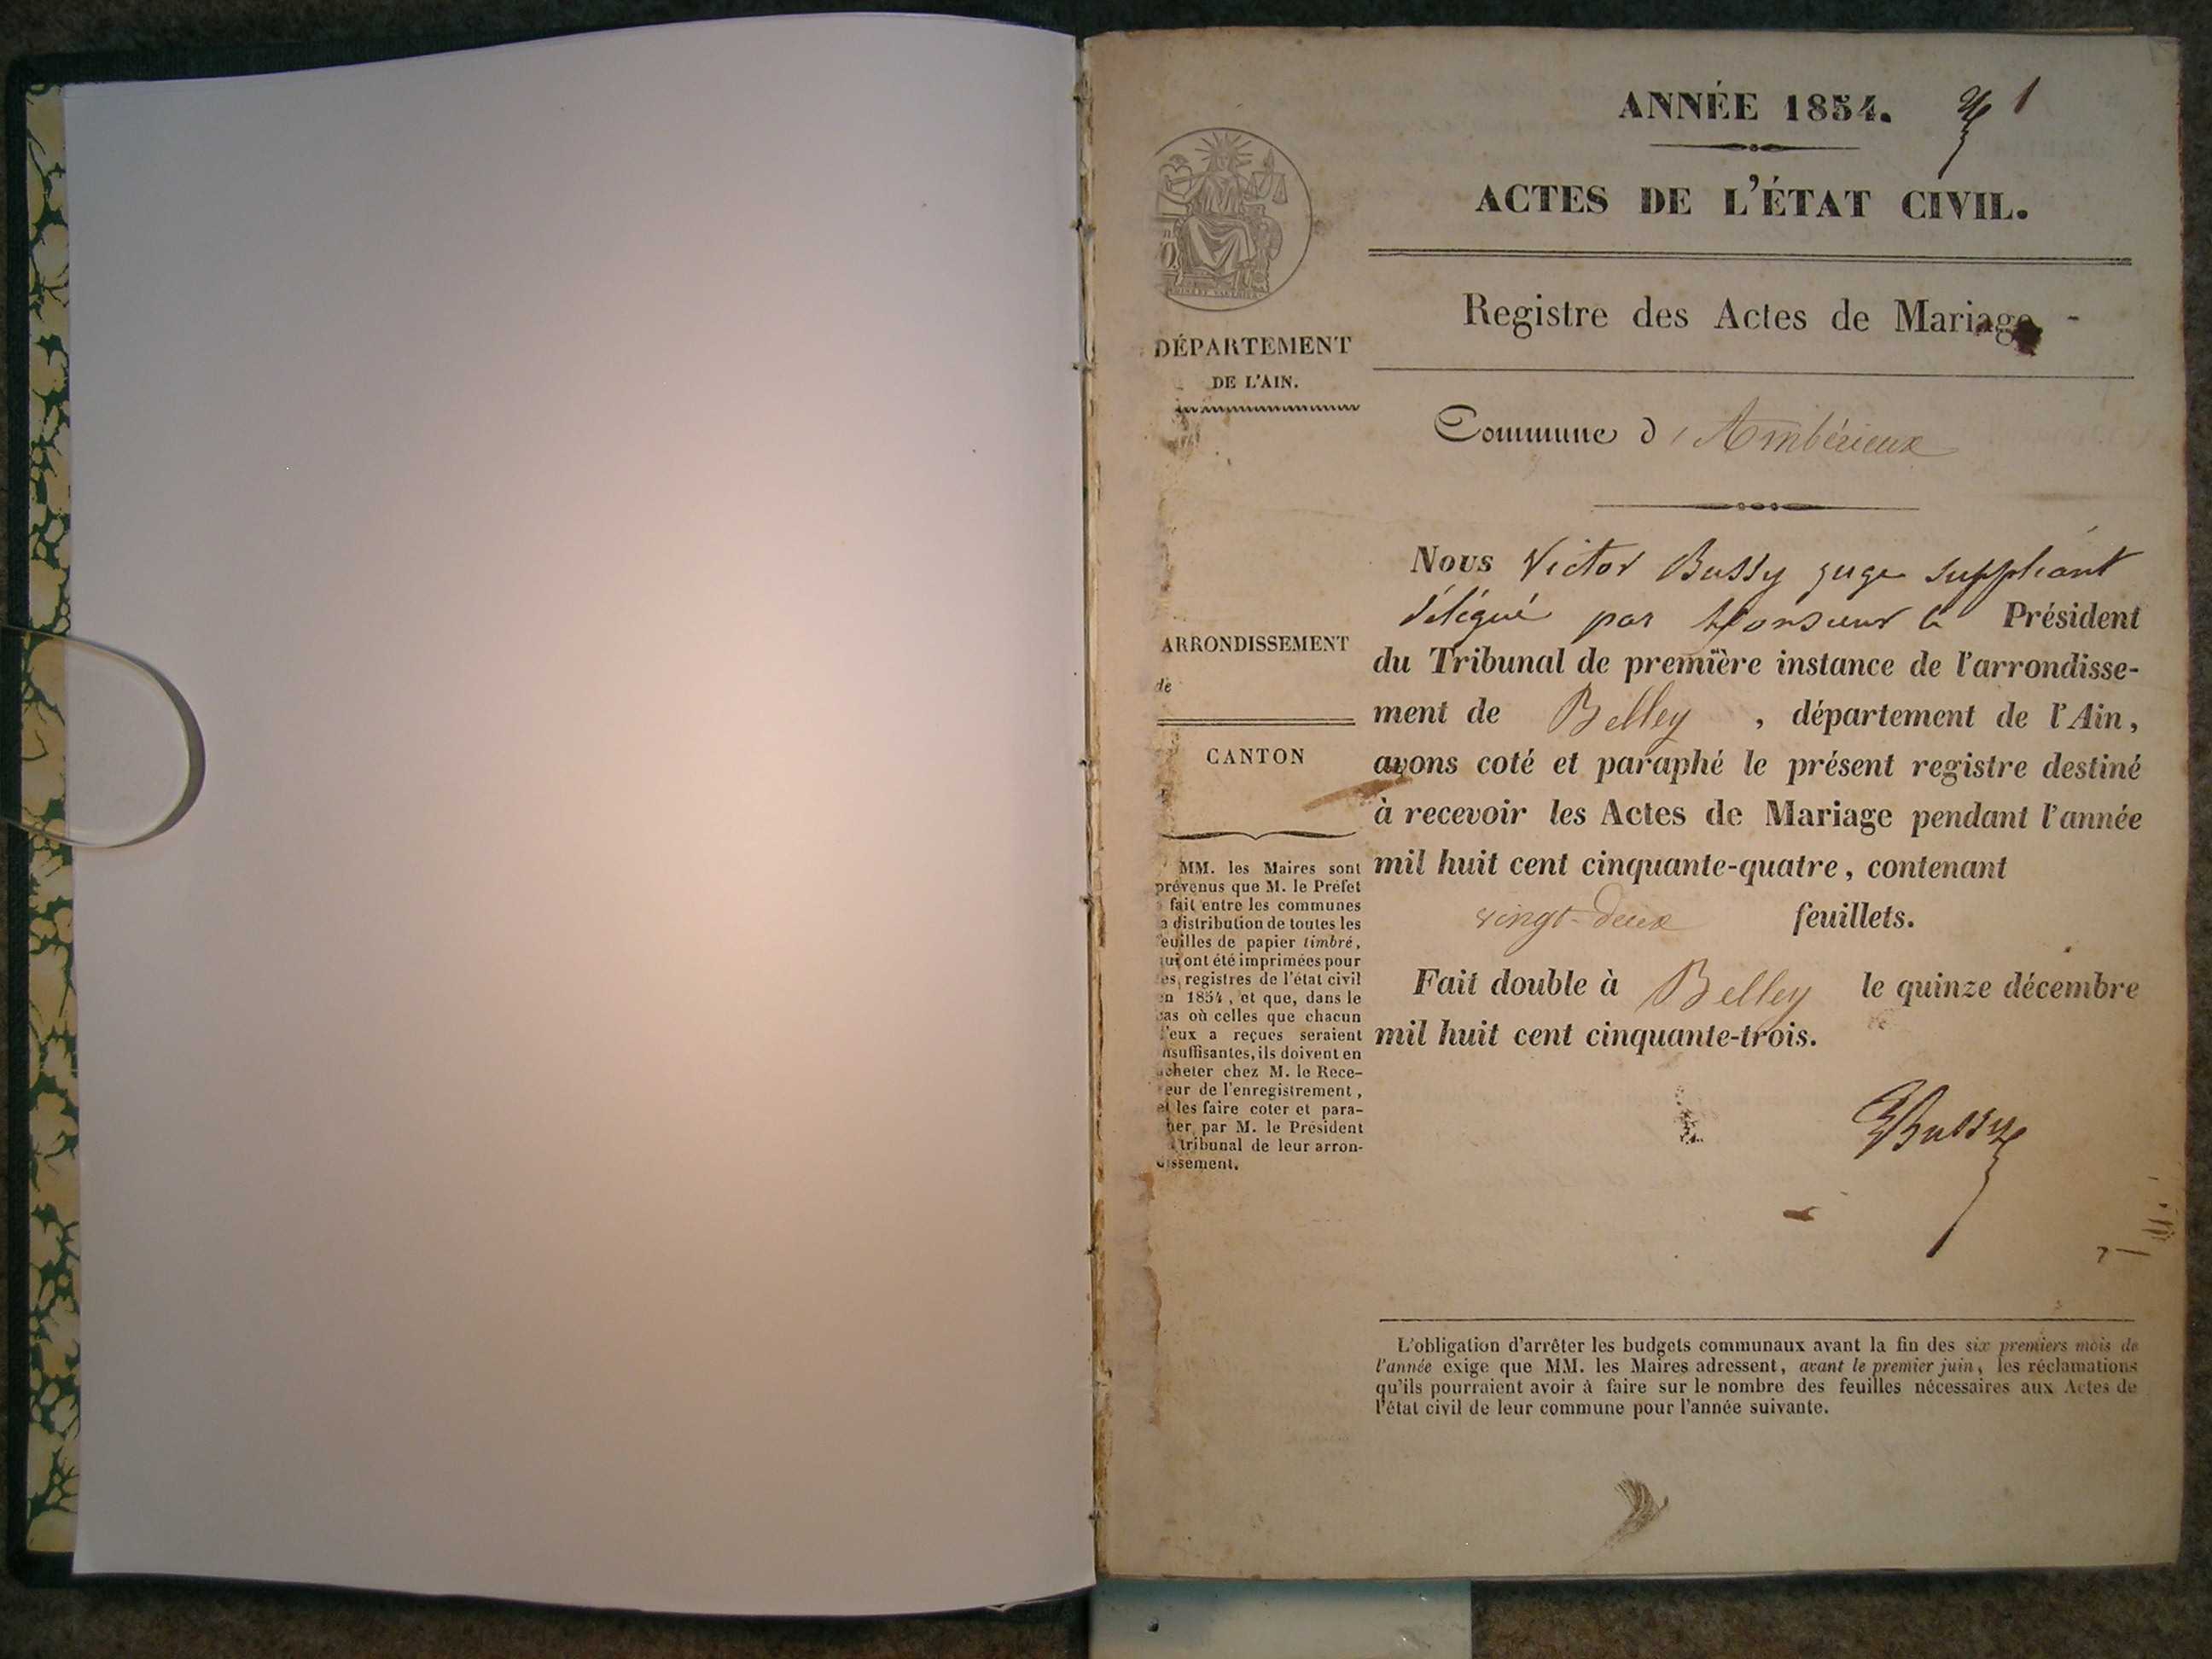 ANNÉE 1854. 1
ACTES DE L'ÉTAT CIVIL.
Registre des Actes de Mariage
DÉPARTEMENT
DE L'AIN.
Commune d'Ambérieux
Nous Victor Bussy juge suppléant
délégué par Monsieur le Président
du Tribunal de première instance de l'arrondisse-
ment de Belley, département de l'Ain,
avons coté et paraphé le présent registre destiné
à recevoir les Actes de Mariage pendant l'année
mil huit cent cinquante-quatre, contenant
vingt-deux feuillets.
Fait double à Belley le quinze décembre
mil huit cent cinquante-trois.
VBussy
ARRONDISSEMENT
de
CANTON
MM. les Maires sont
prévenus que M. le Préfet
fait entre les communes
a distribution de toutes les
euilles de papier timbré,
qui ont été imprimées pour
es registres de l'état civil
en 1854, et que, dans le
cas où celles que chacun
d'eux a reçues seraient
nsuffisantes, ils doivent en
acheter chez M. le Rece-
eur de l'enregistrement,
et les faire coter et para-
her par M. le Président
tribunal de leur arron-
dissement.
L'obligation d'arrêter les budgets communaux avant la fin des six premiers mois de
l'année exige que MM. les Maires adressent, avant le premier juin, les réclamations
qu'ils pourraient avoir à faire sur le nombre des feuilles nécessaires aux Actes de
l'état civil de leur commune pour l'année suivante.